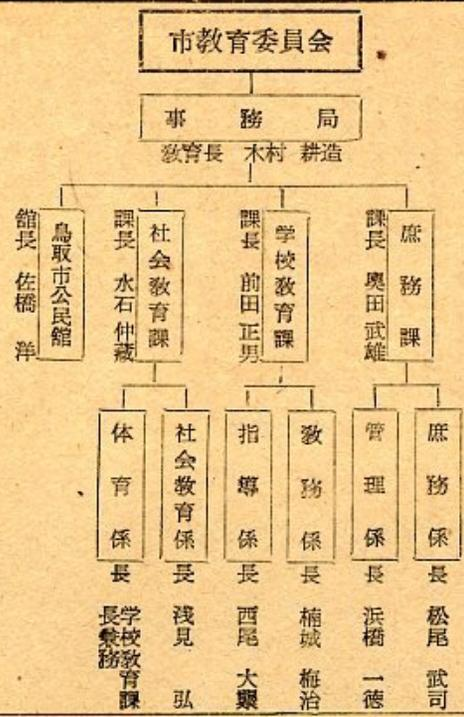 市教育委員会
事務局
教育長 木村 耕造
庶務課
課長 奥田武雄
学校教育課
課長 前田正男
社会教育課
課長 水石仲蔵
鳥取市公民舘
舘長 佐橋 洋
庶務係
長 松尾 武司
管理係
長 浜橋 一徳
教務係
長 楠城 梅治
指導係
長 西尾 大
社会教育係
長 浅見 弘
体育係
長 学校教育課
長兼務